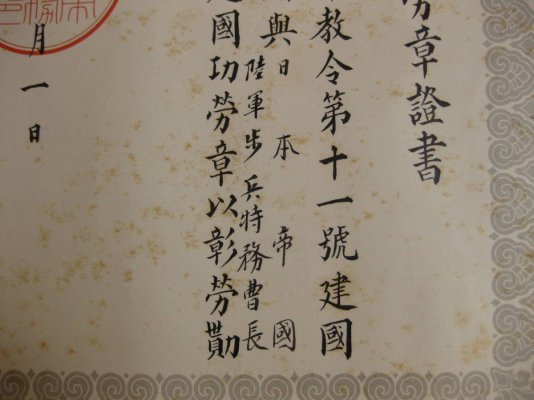 勞章證書
教令第十一號建國
與日本帝國
陸軍步兵特務曹長
建國功勞章以彰勞勩
月一日